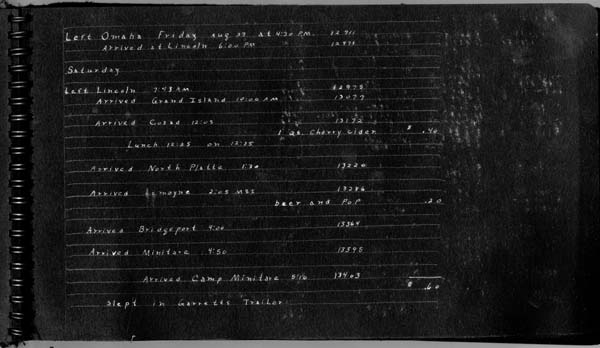 Left Omaha Friday Aug 27 at 4:30 PM. 12911
Arrived at Lincoln 6:00 PM 12975
Saturday
Left Lincoln 7:43 AM 12975
Arrived Grand Island 10:00 AM 13077
Arrived Cozad 12:05 13172
1 qt. Cherry Cider $ .40
Lunch 12:25 on 12:35
Arrived North Platte 1:30 13220
Arrived Lemoyne 2:05 MST 13286
beer and Pop .20
Arrived Bridgeport 4:00 13364
Arrived Minitare 4:50 13395
Arrived Camp Minitare 5:10 13403
$ .60
Slept in Garretts Trailor